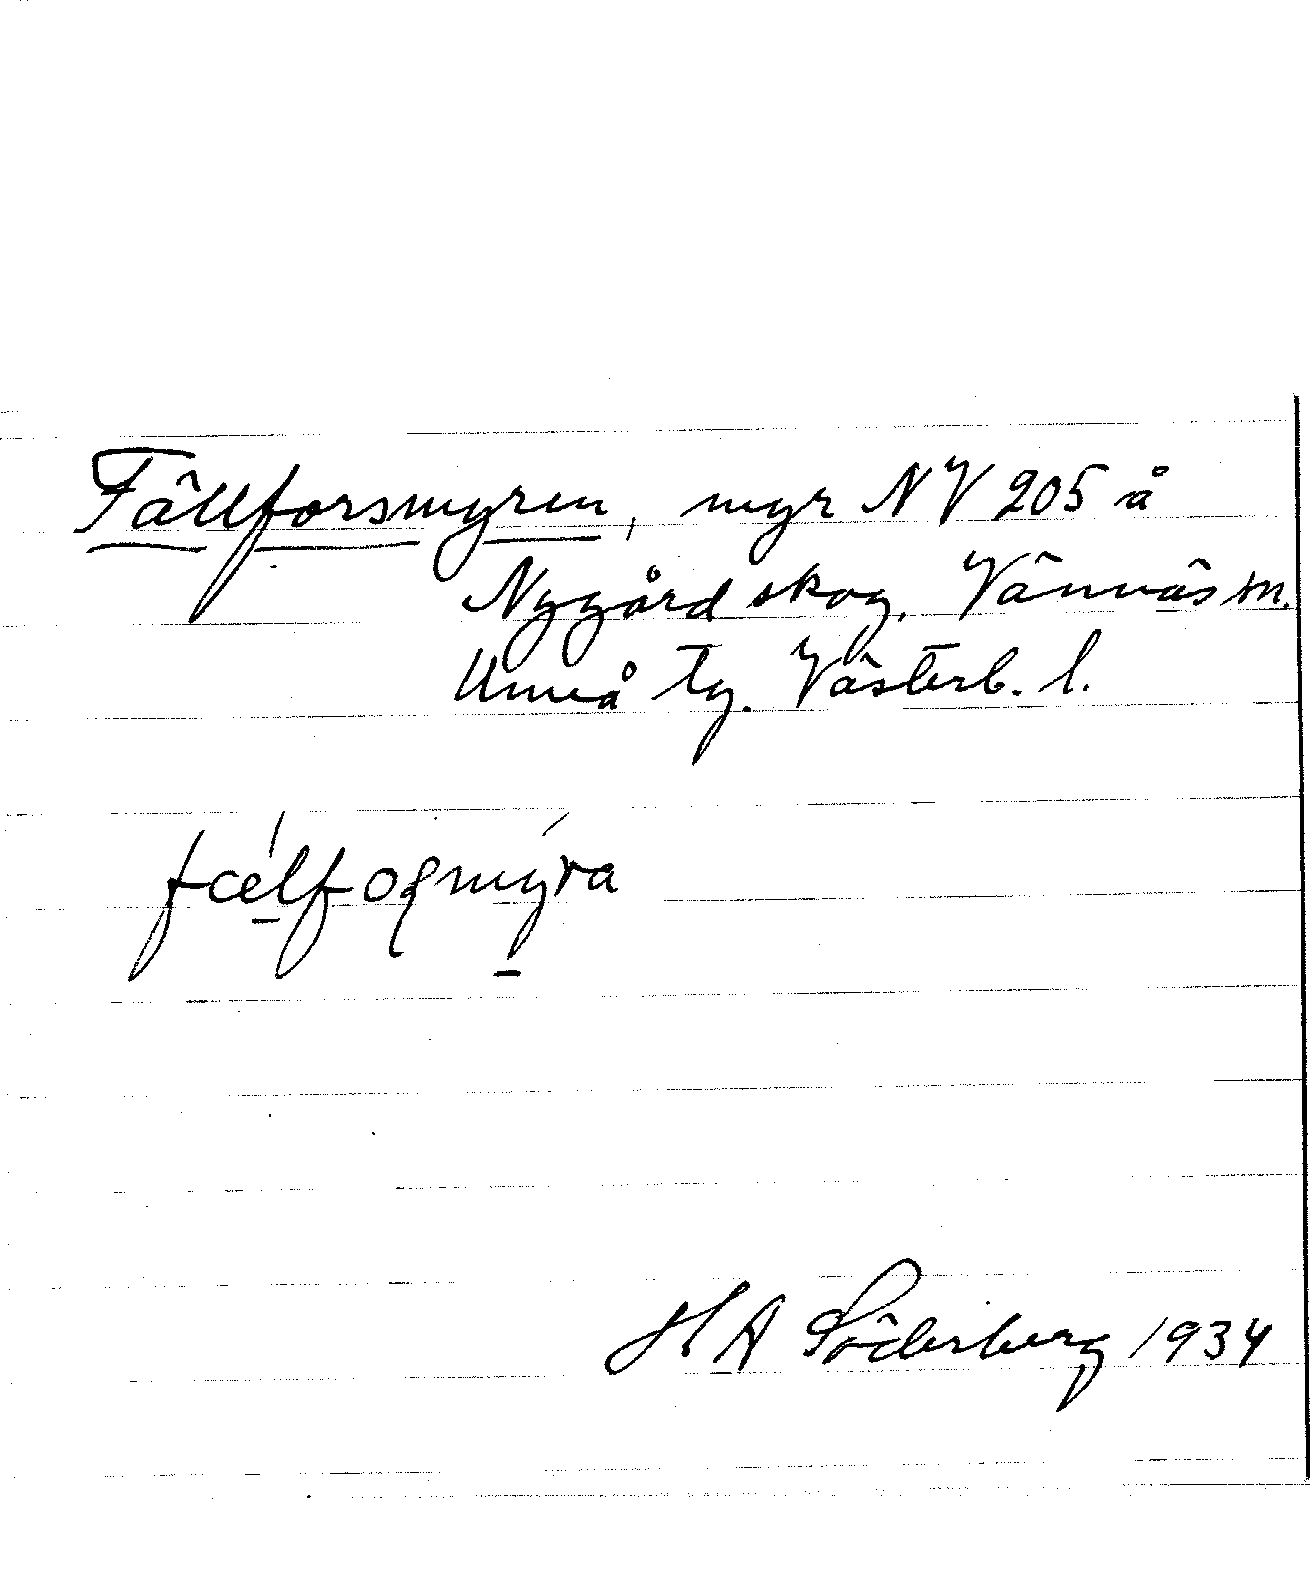 Fällforsmyren, myr NV 205 å
Nygård skog. Vännäs sn.
Umeå tg. Västerb. l.
fælfoʂmyra
H A Söderberg 1934